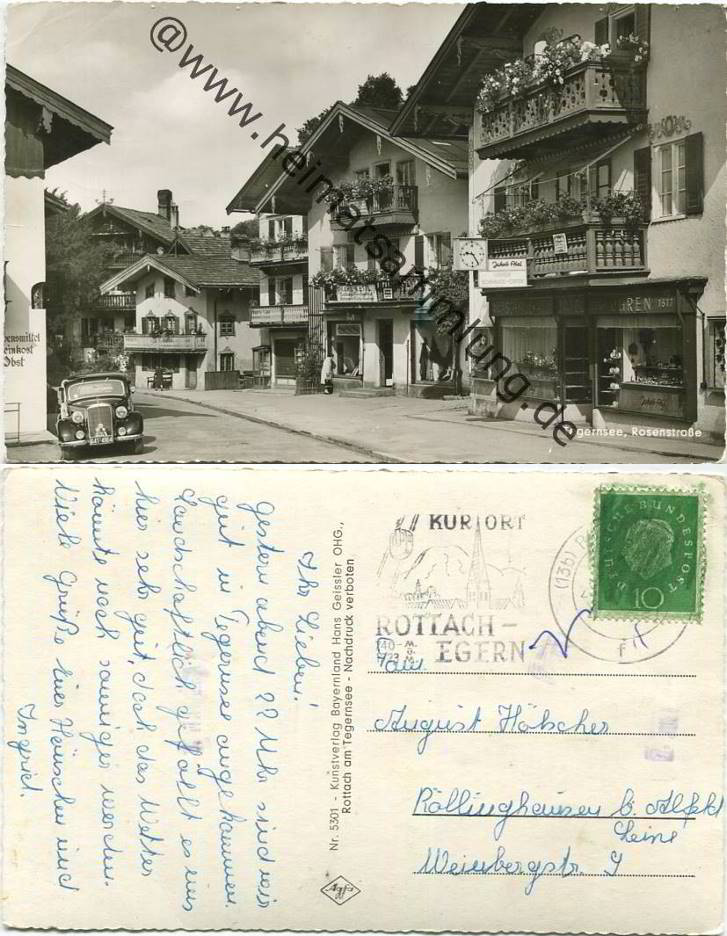 @www.heimatsammlung.de
Jakob Adel
UHREN 1517
ebensmittel
einkost
Obst
gernsee, Rosenstraße
Ihr Lieben!
Gestern abend 22 Uhr sind wir
gut in Tegernsee angekommen.
Landschaftlich gefällt es uns
hier sehr gut, doch das Wetter
könnte noch sonniger werden.
Viele Grüße eures Häuschen und
Ingrid.
Nr. 5301 - Kunstverlag Bayernland Hans Geissler OHG.,
Rottach am Tegernsee - Nachdruck verboten
Agfa
KURORT
ROTTACH-
EGERN
(13b)
f
DEUTSCHE BUNDESPOST
10
August Hölscher
Röllinghausen b. Alfeld
Leine
Weinbergstr. 9